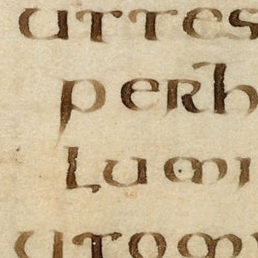 uttes
perh
lumi
utom